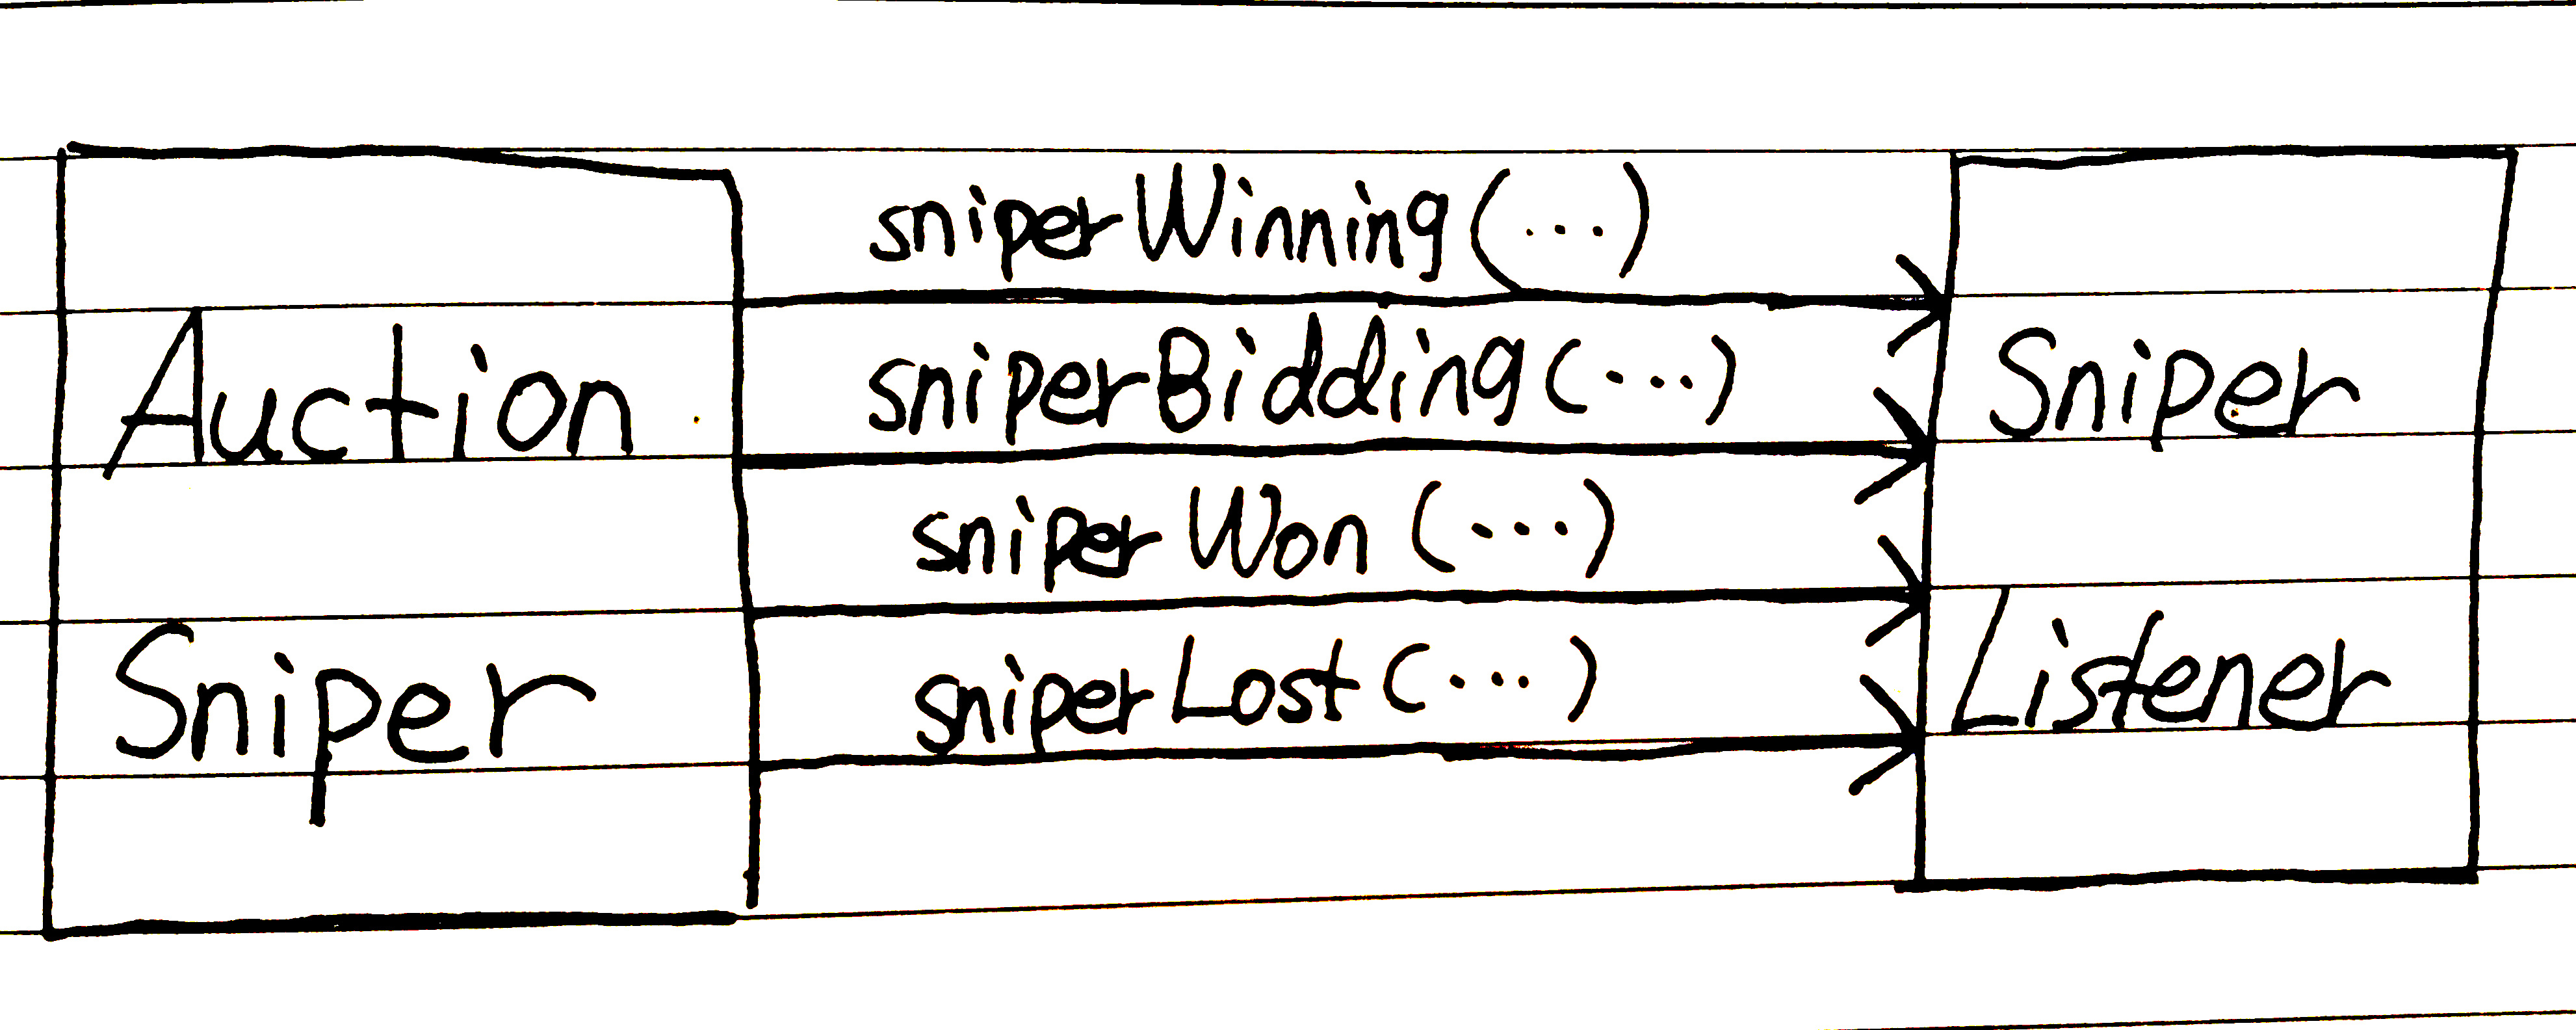 Auction
Sniper
sniperWinning(...)
sniperBidding(...)
sniperWon(...)
sniperLost(...)
Sniper
Listener